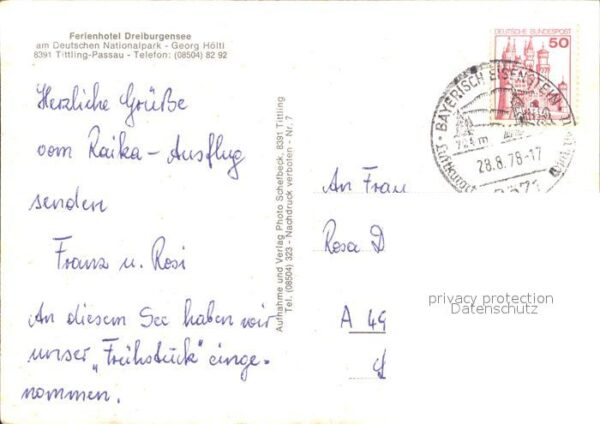 Ferienhotel Dreiburgensee
am Deutschen Nationalpark - Georg Höltl
8391 Tittling-Passau - Telefon: (08504) 82 92
Herzliche Grüße
vom Raika-Ausflug
senden
Franz u. Rosi
An diesem See haben wir
unser „Frühstück" einge-
nommen.
Aufnahme und Verlag Photo Schefbeck, 8391 Tittling
Tel. (08504) 323 - Nachdruck verboten - Nr. 7
DEUTSCHE BUNDESPOST
50
BAYERISCH EISENSTEIN
724 m
28.8.78-17
8371
An Frau
Rosa D
A 49
privacy protection
Datenschutz